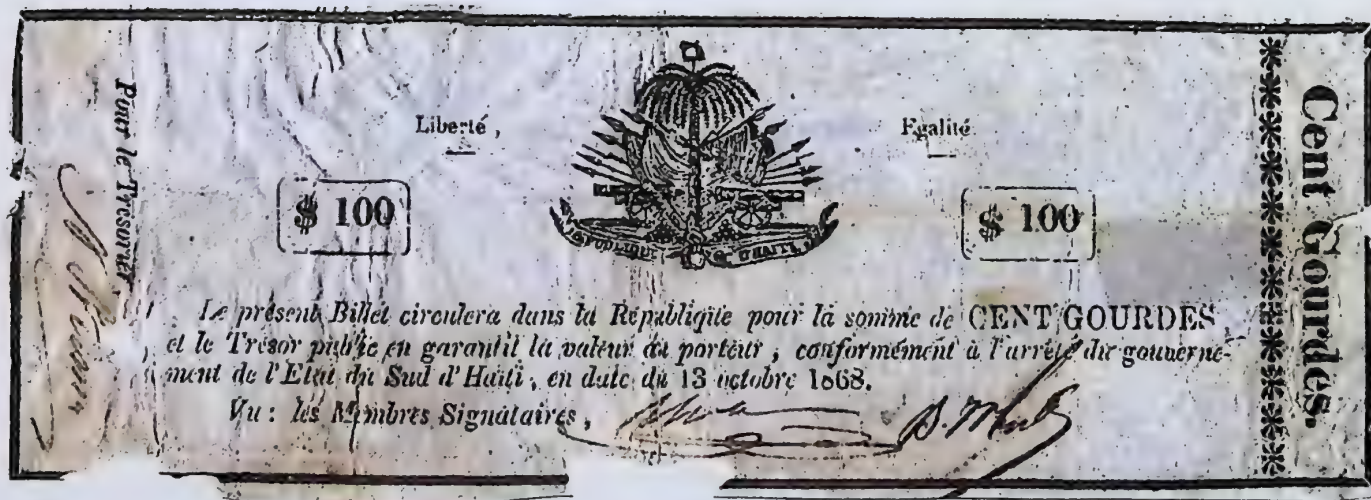 Pour le Trésorier,
Liberté,
Egalité
$ 100
$ 100
REPUBLIQUE D'HAITI
Le présent Billet circulera dans la République pour la somme de CENT GOURDES
et le Trésor public en garantit la valeur au porteur, conformément à l'arrêté du gouverne-
ment de l'Etat du Sud d'Haïti, en date du 13 octobre 1868.
Vu : les Membres Signataires,
Cent Gourdes.